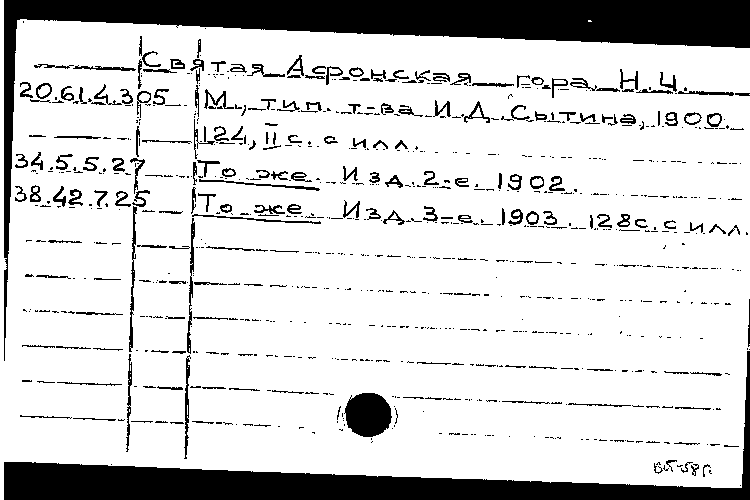 Святая Афонская гора. Н.Ч.
20.61.4.305 М., тип. т-ва И.Д. Сытина, 1900.
124, II с. с илл.
34.5.5.27 То же. Изд. 2-е. 1902.
38.42.7.25 То же. Изд. 3-е. 1903. 128с. с илл.